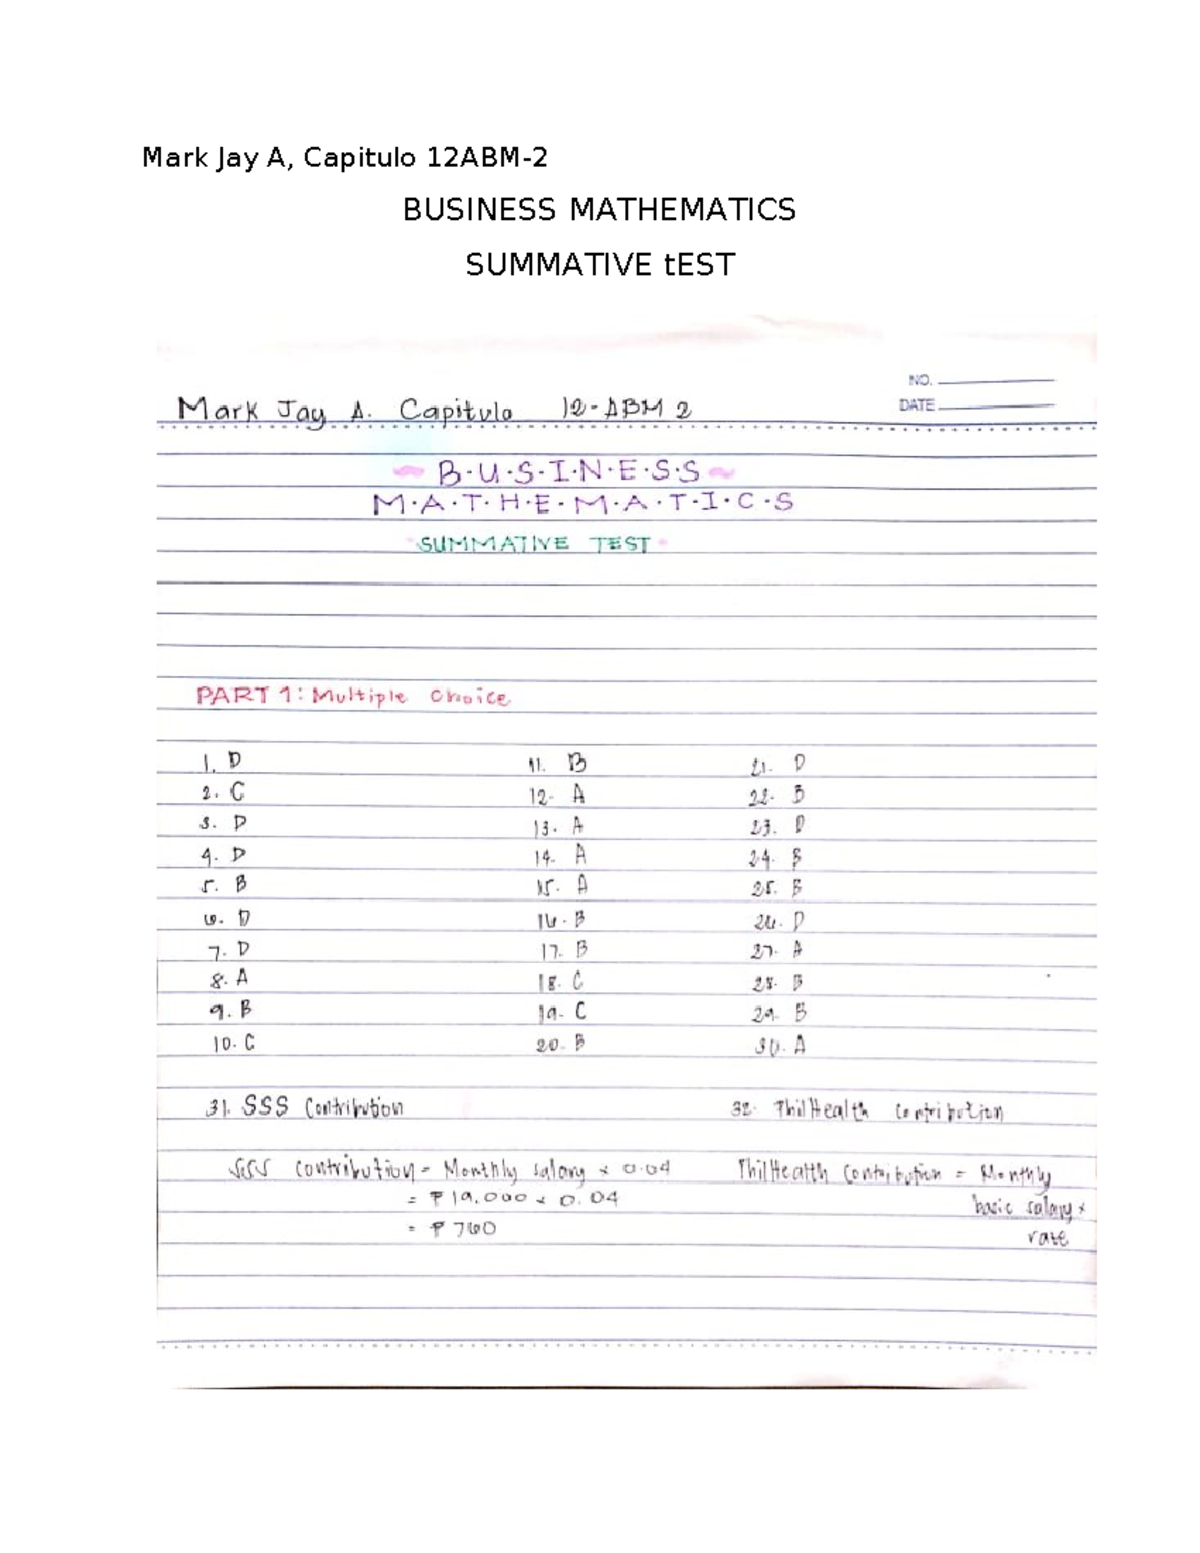 Mark Jay A, Capitulo 12ABM-2
BUSINESS MATHEMATICS
SUMMATIVE tEST
NO.
DATE
Mark Jay A. Capitulo 12-ABM 2
B·U·S·I·N·E·S·S
M·A·T·H·E·M·A·T·I·C·S
SUMMATIVE TEST
PART 1: Multiple Choice
1. D
2. C
3. D
4. D
5. B
6. D
7. D
8. A
9. B
10. C
11. B
12. A
13. A
14. A
15. A
16. B
17. B
18. C
19. C
20. B
21. D
22. B
23. D
24. B
25. B
26. D
27. A
28. B
29. B
30. A
31. SSS Contribution
SSS contribution = Monthly salary x 0.04
= ₱19,000 x 0.04
= ₱760
32. PhilHealth Contribution
PhilHealth Contribution = Monthly
basic salary x
rate